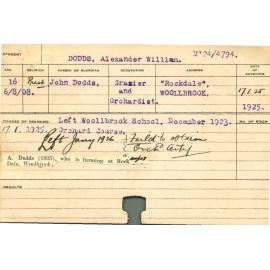 STUDENT
DODDS, Alexander William. Mc24/4794.
AGE RELIGION PARENT OR GUARDIAN OCCUPATION ADDRESS
16 Presb John Dodds, Grazier "Rockdale", 17.1.25
6/8/08. and WOOLLBROOK,
Orchardist. 1925.
COURSE OF TRAINING Left Woollbrook School, December 1923.
17.1.1925. Orchard Course.
Left Jany 1926 Failed to obtain
Orch. Certif
A. Dodds (1925), who is farming at Rock
Dale, Woolbrook.
RESULTS